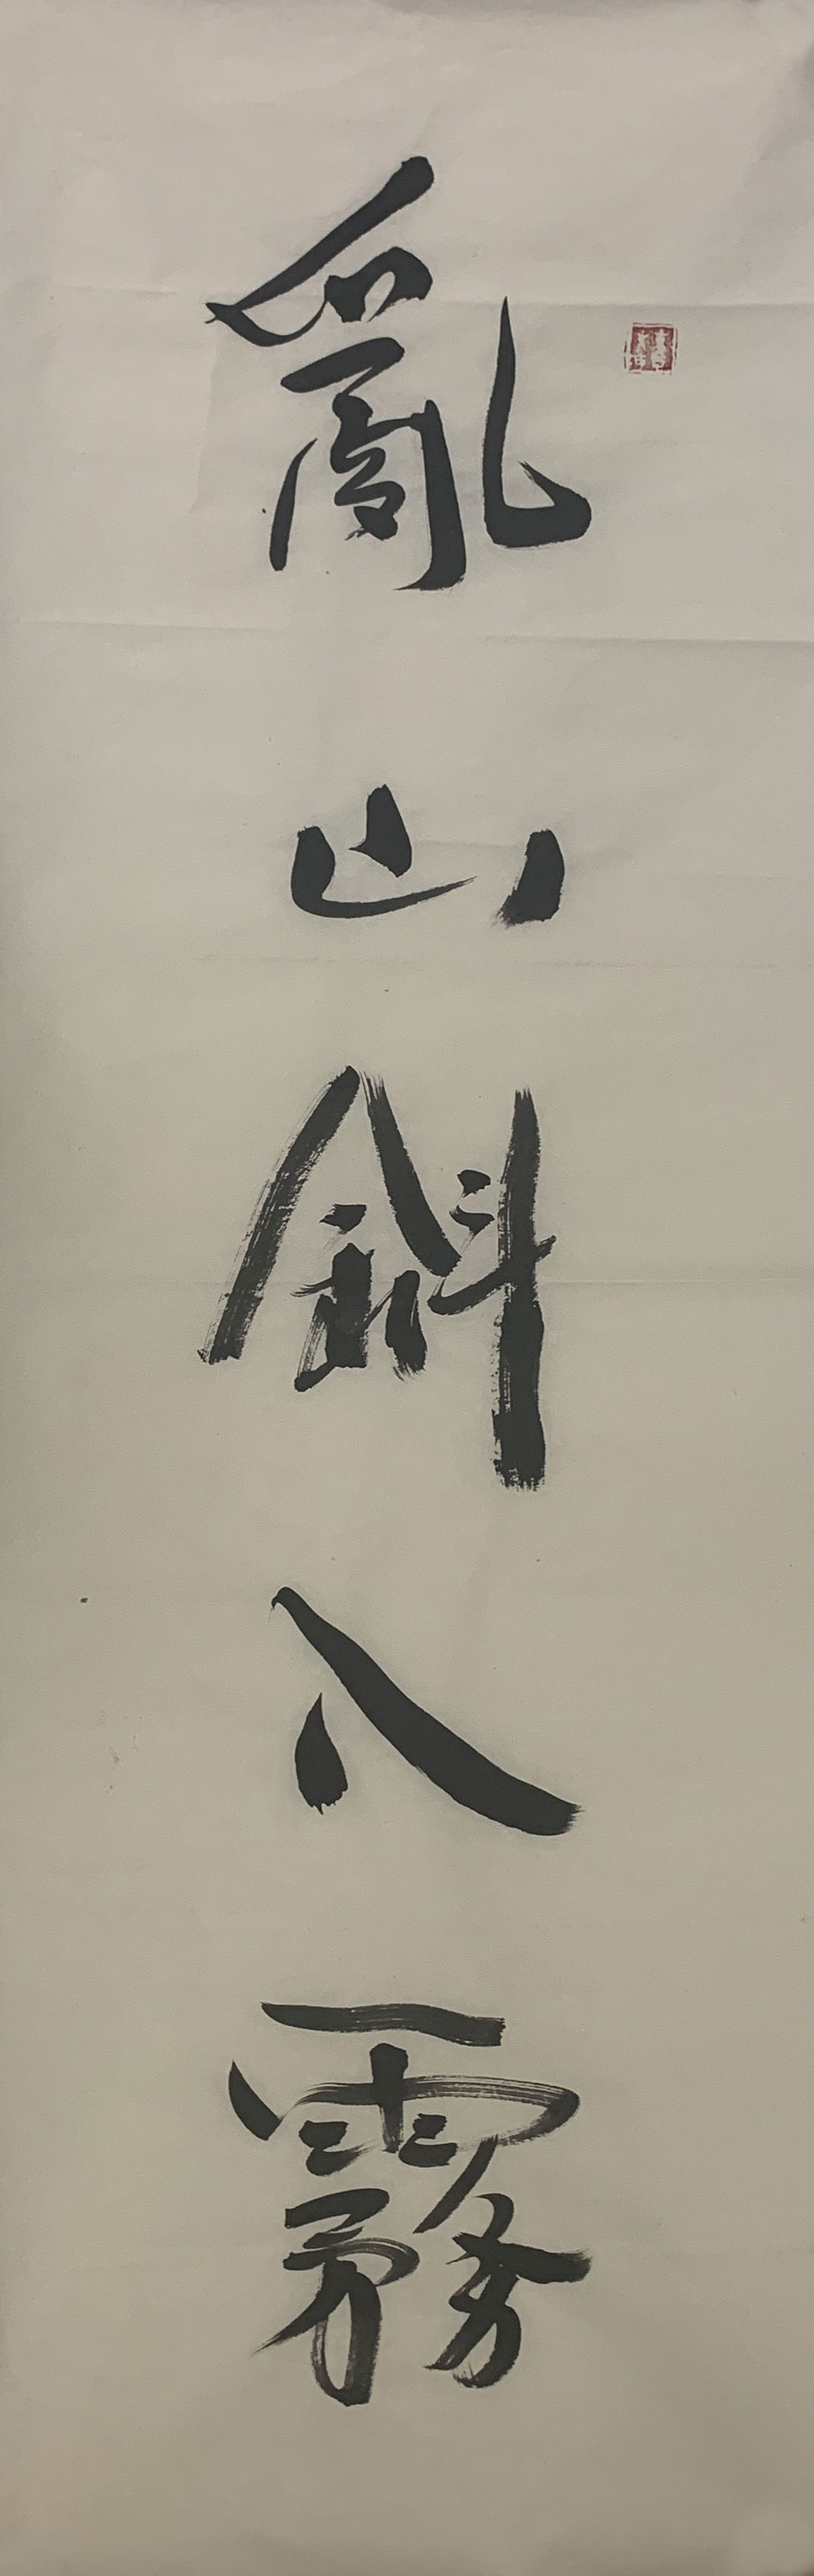 亂山斜入霧